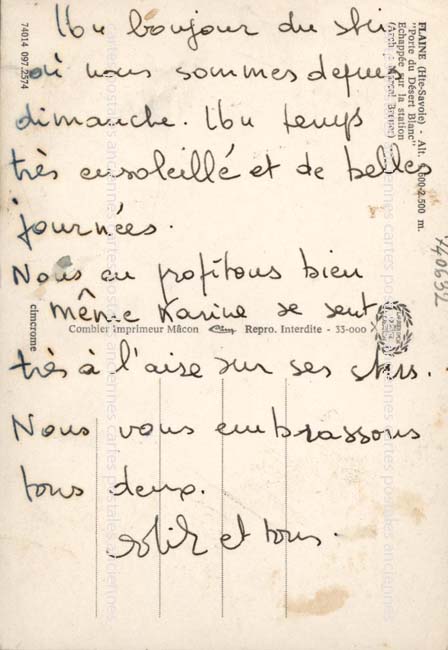 Un bonjour du ski
où nous sommes depuis
dimanche. Un temps
très ensoleillé et de belles
journées.
Nous en profitons bien
même Karine se sent
très à l'aise sur ses skis.
Nous vous embrassons
tous deux.
et tous.
FLAINE (Hte-Savoie) - Alt. 1.600-2.500 m.
"Porte du Désert Blanc"
Echappée sur la station
(Arch : Marcel Breuer)
74014 097.2574
cimcrome
Combier Imprimeur Mâcon Cim Repro. Interdite - 33-000
140632
cartes postales anciennes